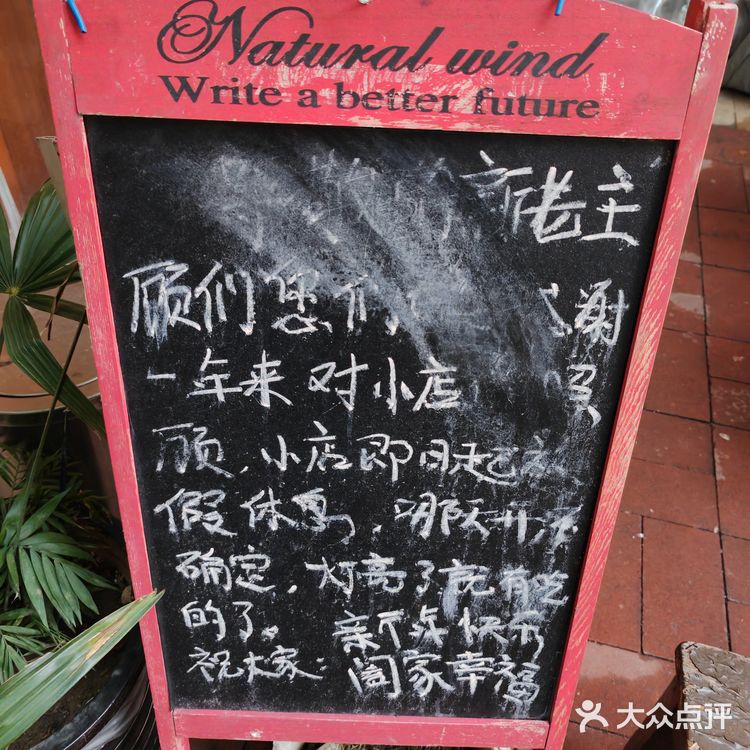 Natural wind
Write a better future
主
顾们 您们 谢
一年来 对小店
顾，小店即日起
假休息，那天开
确定，灯亮了就有吃
的了。 新年快乐
祝大家：阖家幸福
大众点评